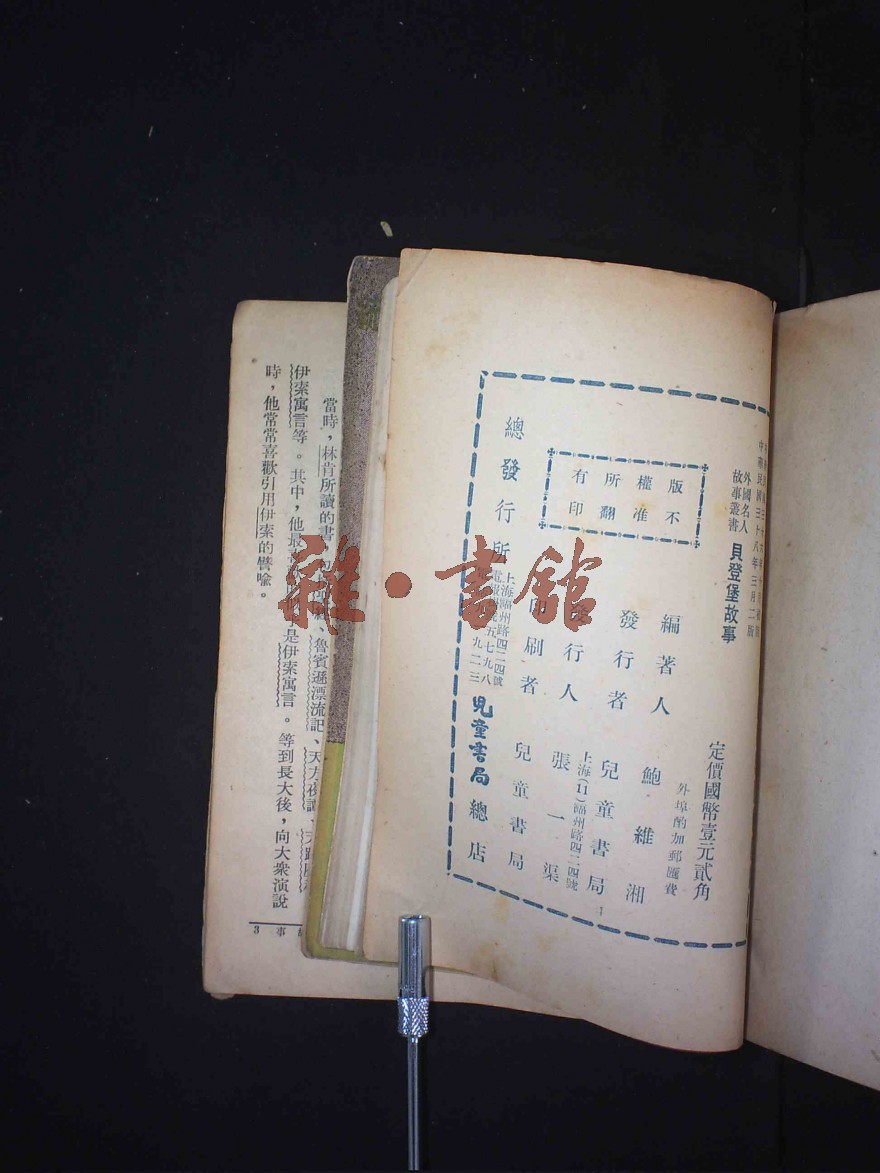 中華民國三十八年三月二版
外國名人
故事叢書
貝登堡故事
定價國幣壹元貳角
外埠酌加郵匯費
版權所有
不准翻印
編著人 鮑維湘
發行者 兒童書局
上海(11)福州路四二四號
發行人 張一渠
印刷者 兒童書局
總發行所
上海福州路四二四號
兒童書局總店
雜·書館
當時，林肯所讀的書
魯賓遜漂流記、天方夜譚、
伊索寓言等。其中，他最
是伊索寓言。等到長大後，向大衆演說
時，他常常喜歡引用伊索的譬喻。
事
3